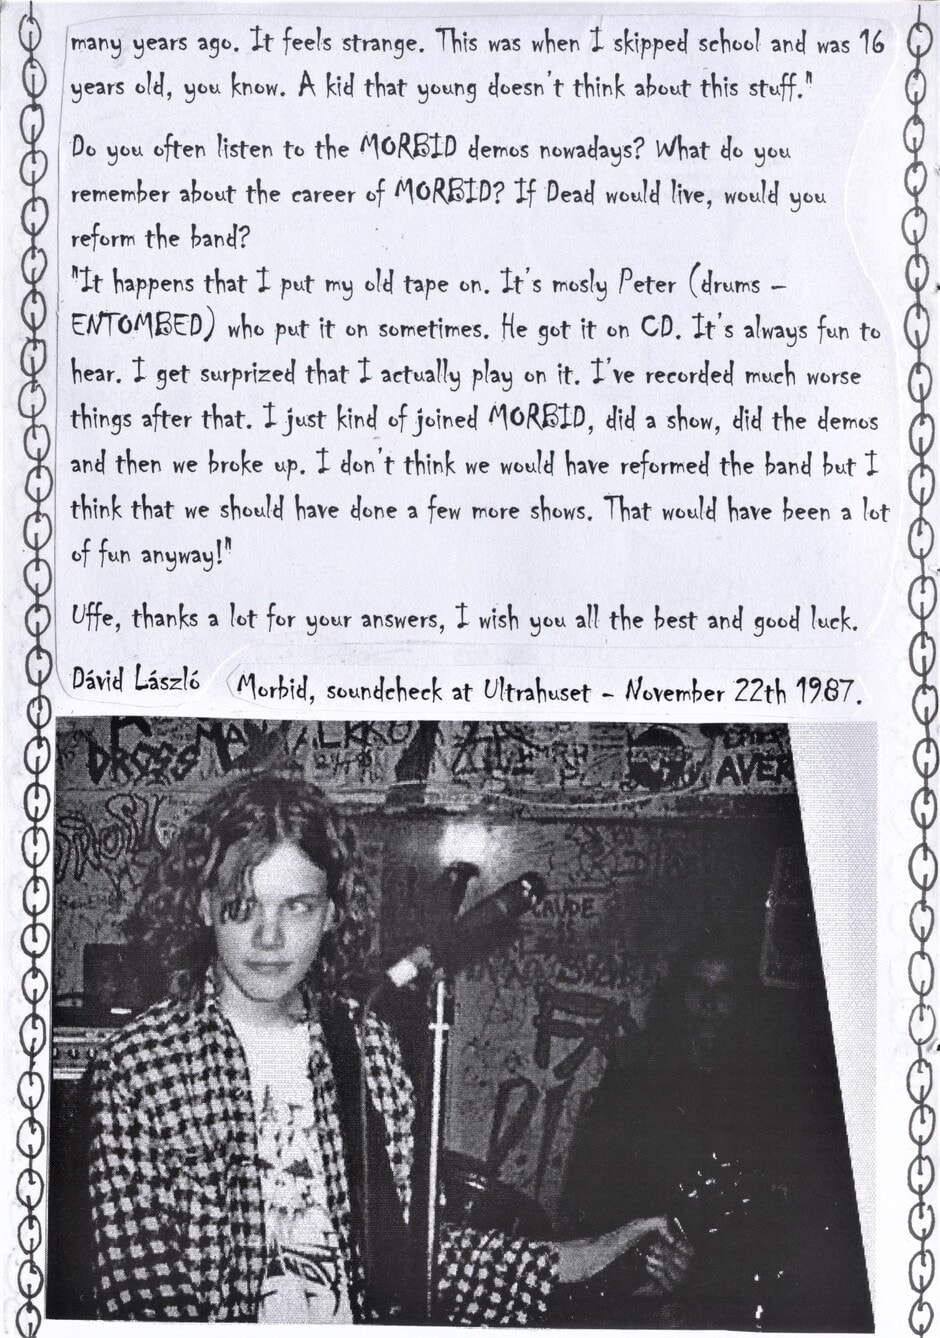 many years ago. It feels strange. This was when I skipped school and was 16
years old, you know. A kid that young doesn't think about this stuff."
Do you often listen to the MORBID demos nowadays? What do you
remember about the career of MORBID? If Dead would live, would you
reform the band?
"It happens that I put my old tape on. It's mosly Peter (drums –
ENTOMBED) who put it on sometimes. He got it on CD. It's always fun to
hear. I get surprized that I actually play on it. I've recorded much worse
things after that. I just kind of joined MORBID, did a show, did the demos
and then we broke up. I don't think we would have reformed the band but I
think that we should have done a few more shows. That would have been a lot
of fun anyway!"
Uffe, thanks a lot for your answers, I wish you all the best and good luck.
Dávid László
Morbid, soundcheck at Ultrahuset – November 22th 1987.
DROSS
AVER